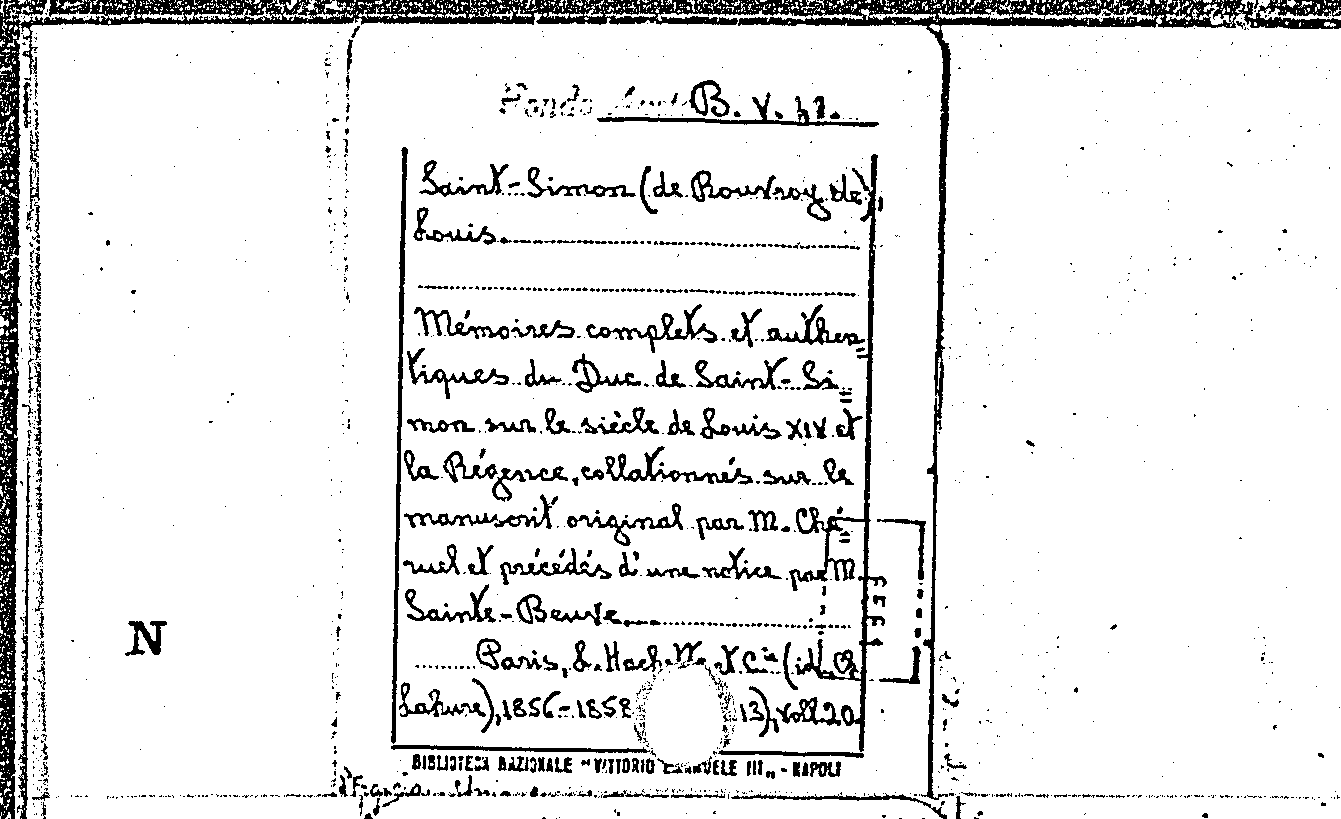 Fondo B. V. 41.
Saint-Simon (de Rouvroy de),
Louis.
Mémoires complets et authen
tiques du Duc de Saint-Si
mon sur le siècle de Louis XIV et
la Régence, collationnés sur le
manuscrit original par M. Ché
ruel et précédés d'une notice par M.
Sainte-Beuve.
Paris, L. Hachette et Cie (id. Ch
Lahure), 1856-1858 13), voll. 20.
N
BIBLIOTECA NAZIONALE "VITTORIO EMANUELE III„ - NAPOLI